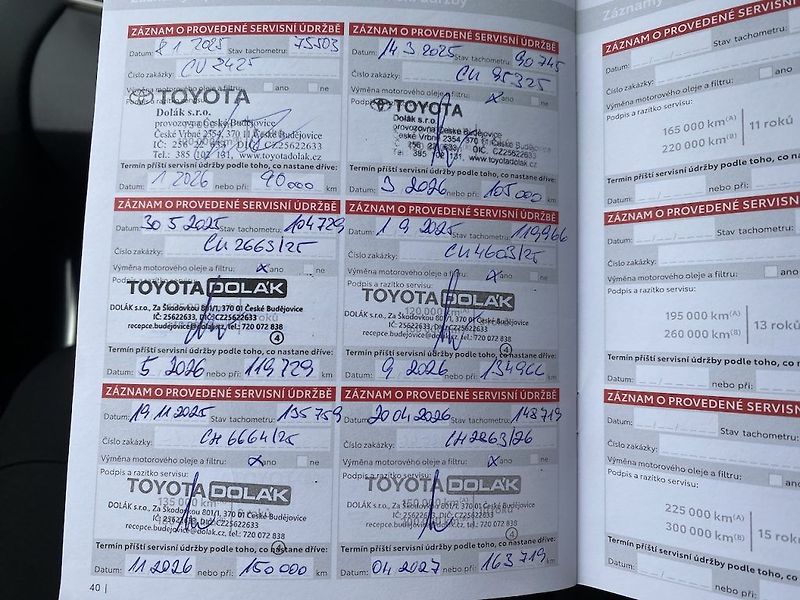 ZÁZNAM O PROVEDENÉ SERVISNÍ ÚDRŽBĚ
Datum: 8 1 2025 Stav tachometru: 75503
Číslo zakázky: CU 2425
Výměna motorového oleje a filtru: ano ne
TOYOTA
Dolák s.r.o.
provozovna České Budějovice
České Vrbné 2354, 370 11 České Budějovice
IČ: 256 22 633 DIČ: CZ25622633
Tel.: 385 102 131, www.toyotadolak.cz
Termín příští servisní údržby podle toho, co nastane dříve:
Datum: 1 2026 nebo při: 90 000 km
ZÁZNAM O PROVEDENÉ SERVISNÍ ÚDRŽBĚ
Datum: 14 3 2025 Stav tachometru: 90 745
Číslo zakázky: CU 95325
Výměna motorového oleje a filtru: x ano ne
Podpis a razítko servisu:
TOYOTA
Dolák s.r.o.
provozovna České Budějovice
České Vrbné 2354, 370 11 České Budějovice
256 22 633 DIČ: CZ25622633
Tel.: 385 102 131, www.toyotadolak.cz
Termín příští servisní údržby podle toho, co nastane dříve:
Datum: 3 2026 nebo při: 105 000 km
ZÁZNAM O PROVEDENÉ SERVISNÍ ÚDRŽBĚ
Datum: 30 5 2025 Stav tachometru: 104 729
Číslo zakázky: CU 2663/25
Výměna motorového oleje a filtru: x ano ne
Podpis a razítko servisu:
TOYOTA DOLÁK
DOLÁK s.r.o., Za Škodovkou 801/1, 370 01 České Budějovice
IČ: 25622633, DIČ:CZ25622633
recepce.budejovice@dolak.cz, tel.: 720 072 838
4
Termín příští servisní údržby podle toho, co nastane dříve:
Datum: 5 2026 nebo při: 119 729 km
ZÁZNAM O PROVEDENÉ SERVISNÍ ÚDRŽBĚ
Datum: 1 9 2025 Stav tachometru: 119 966
Číslo zakázky: CU 4603/25
Výměna motorového oleje a filtru: x ano ne
Podpis a razítko servisu:
TOYOTA DOLÁK
120 000 km
DOLÁK s.r.o., Za Škodovkou 801/1, 370 01 České Budějovice
IČ: 25622633, DIČ:CZ25622633
recepce.budejovice@dolak.cz, tel.: 720 072 838
4
Termín příští servisní údržby podle toho, co nastane dříve:
Datum: 9 2026 nebo při: 134 966 km
ZÁZNAM O PROVEDENÉ SERVISNÍ ÚDRŽBĚ
Datum: 19 11 2025 Stav tachometru: 135 759
Číslo zakázky: CH 6664/25
Výměna motorového oleje a filtru: x ano ne
Podpis a razítko servisu:
TOYOTA DOLÁK
135 000 km
DOLÁK s.r.o., Za Škodovkou 801/1, 370 01 České Budějovice
IČ: 25622633, DIČ:CZ25622633
recepce.budejovice@dolak.cz, tel.: 720 072 838
4
Termín příští servisní údržby podle toho, co nastane dříve:
Datum: 11 2026 nebo při: 150 000 km
ZÁZNAM O PROVEDENÉ SERVISNÍ ÚDRŽBĚ
Datum: 20 04 2026 Stav tachometru: 148719
Číslo zakázky: CH 2263/26
Výměna motorového oleje a filtru: x ano ne
Podpis a razítko servisu:
TOYOTA DOLÁK
DOLÁK s.r.o., Za Škodovkou 801/1, 370 01 České Budějovice
IČ: 25622633, DIČ:CZ25622633
recepce.budejovice@dolak.cz, tel.: 720 072 838
4
Termín příští servisní údržby podle toho, co nastane dříve:
Datum: 04 2027 nebo při: 163 719 km
40 |
Záznamy
ZÁZNAM O PROVEDENÉ SERVISN
Datum: Stav tachometru:
Číslo zakázky:
Výměna motorového oleje a filtru: ano
Podpis a razítko servisu:
165 000 km(A)
220 000 km(B)
11 roků
Termín příští servisní údržby podle toho, co nas
Datum: nebo při:
ZÁZNAM O PROVEDENÉ SERVISN
Datum: Stav tachometru:
Číslo zakázky:
Výměna motorového oleje a filtru: ano
Podpis a razítko servisu:
195 000 km(A)
260 000 km(B)
13 roků
Termín příští servisní údržby podle toho, co
Datum: nebo při:
ZÁZNAM O PROVEDENÉ SERVISN
Datum: Stav tachometru:
Číslo zakázky:
Výměna motorového oleje a filtru:
Podpis a razítko servisu:
225 000 km(A)
300 000 km(B)
15 rok
Termín příští servisní údržby podle toho,
Datum: nebo při: